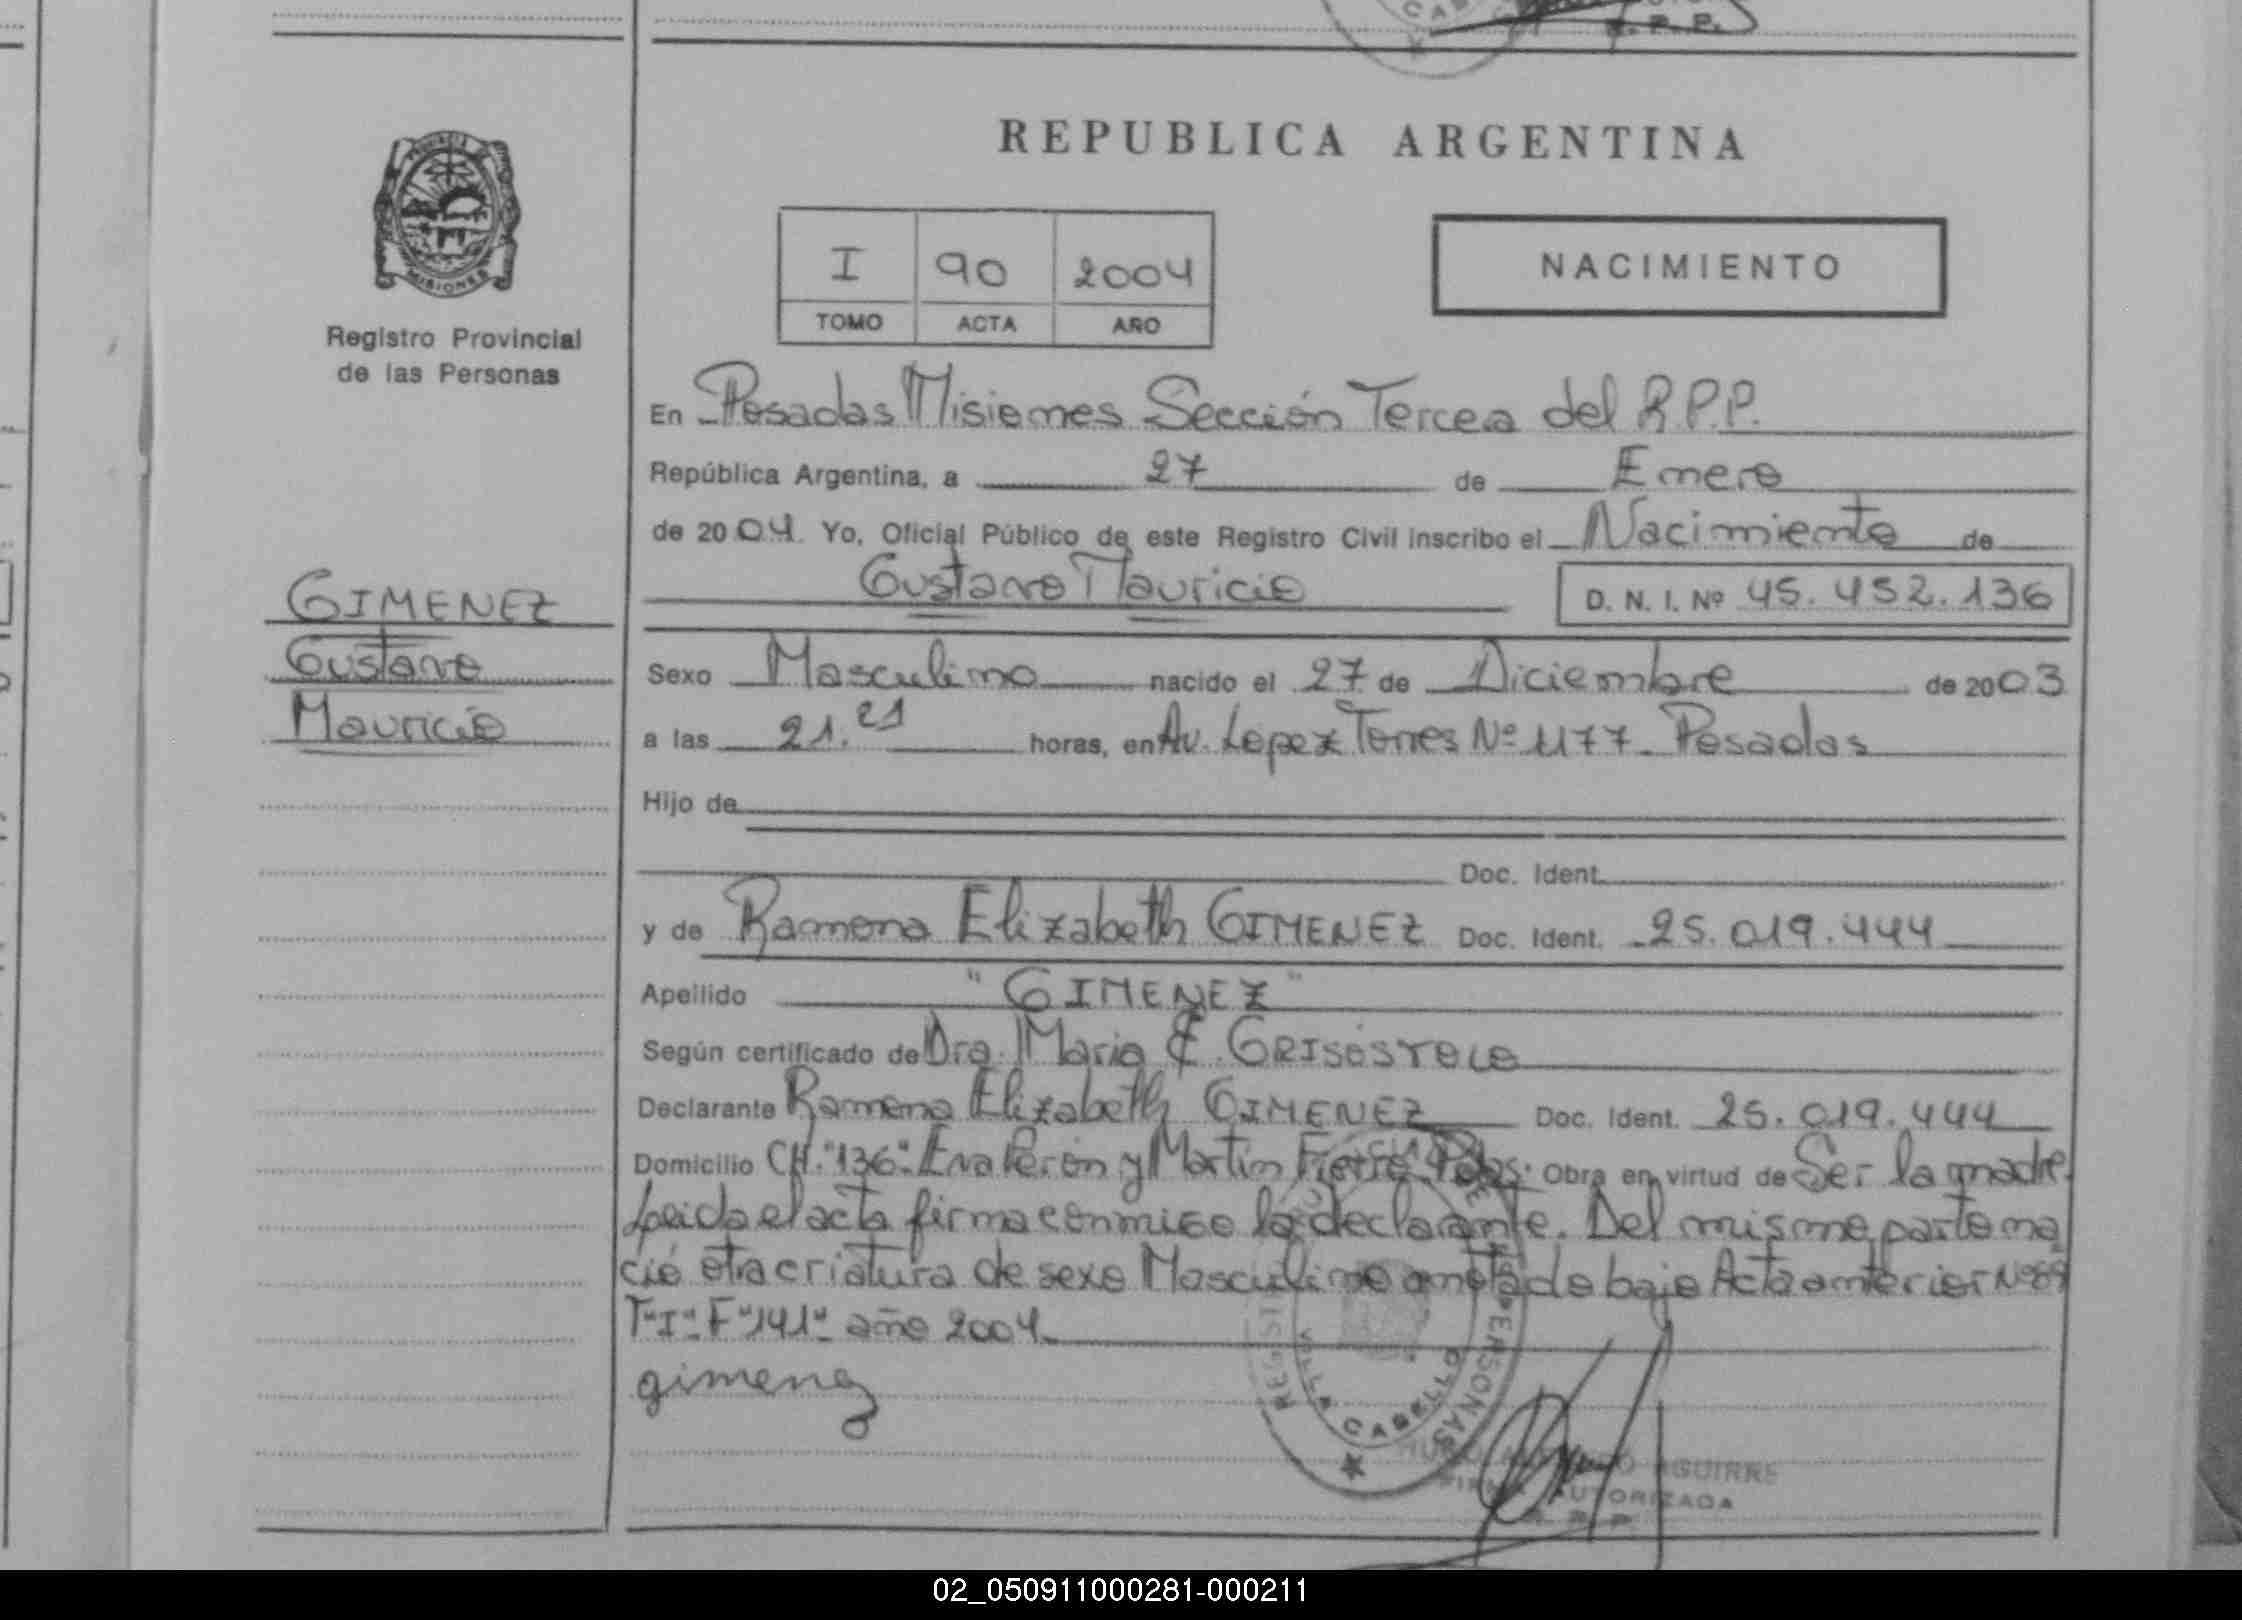 REPUBLICA ARGENTINA
PROVINCIA DE
MISIONES
Registro Provincial
de las Personas
I 90 2004
TOMO ACTA AÑO
NACIMIENTO
En Posadas Misiones Sección Tercera del R.P.P.
República Argentina, a 27 de Enero
de 2004. Yo, Oficial Público de este Registro Civil inscribo el Nacimiento de
Gustavo Mauricio
D. N. I. Nº 45.452.136
GIMENEZ
Gustavo
Mauricio
Sexo Masculino nacido el 27 de Diciembre de 2003
a las 21.21 horas, en Av. Lopez Torres Nº 1177 Posadas
Hijo de
Doc. Ident.
y de Ramona Elizabeth GIMENEZ Doc. Ident. 25.019.444
Apellido "GIMENEZ"
Según certificado de Dra. Maria E. GRISÓSTOLO
Declarante Ramona Elizabeth GIMENEZ Doc. Ident. 25.019.444
Domicilio CH."136" Eva Perón y Martin Fierro Pdas. Obra en virtud de Ser la madre.
Leida el acta firma conmigo la declarante. Del mismo parto na
ció otra criatura de sexo Masculino anotado bajo Acta anterior Nº 89
T"I" F"141" año 2004
gimenez
VILLA CABELLO
PERSONAS
AGUIRRE
FIRMA AUTORIZADA
R. P. P.
02_050911000281-000211